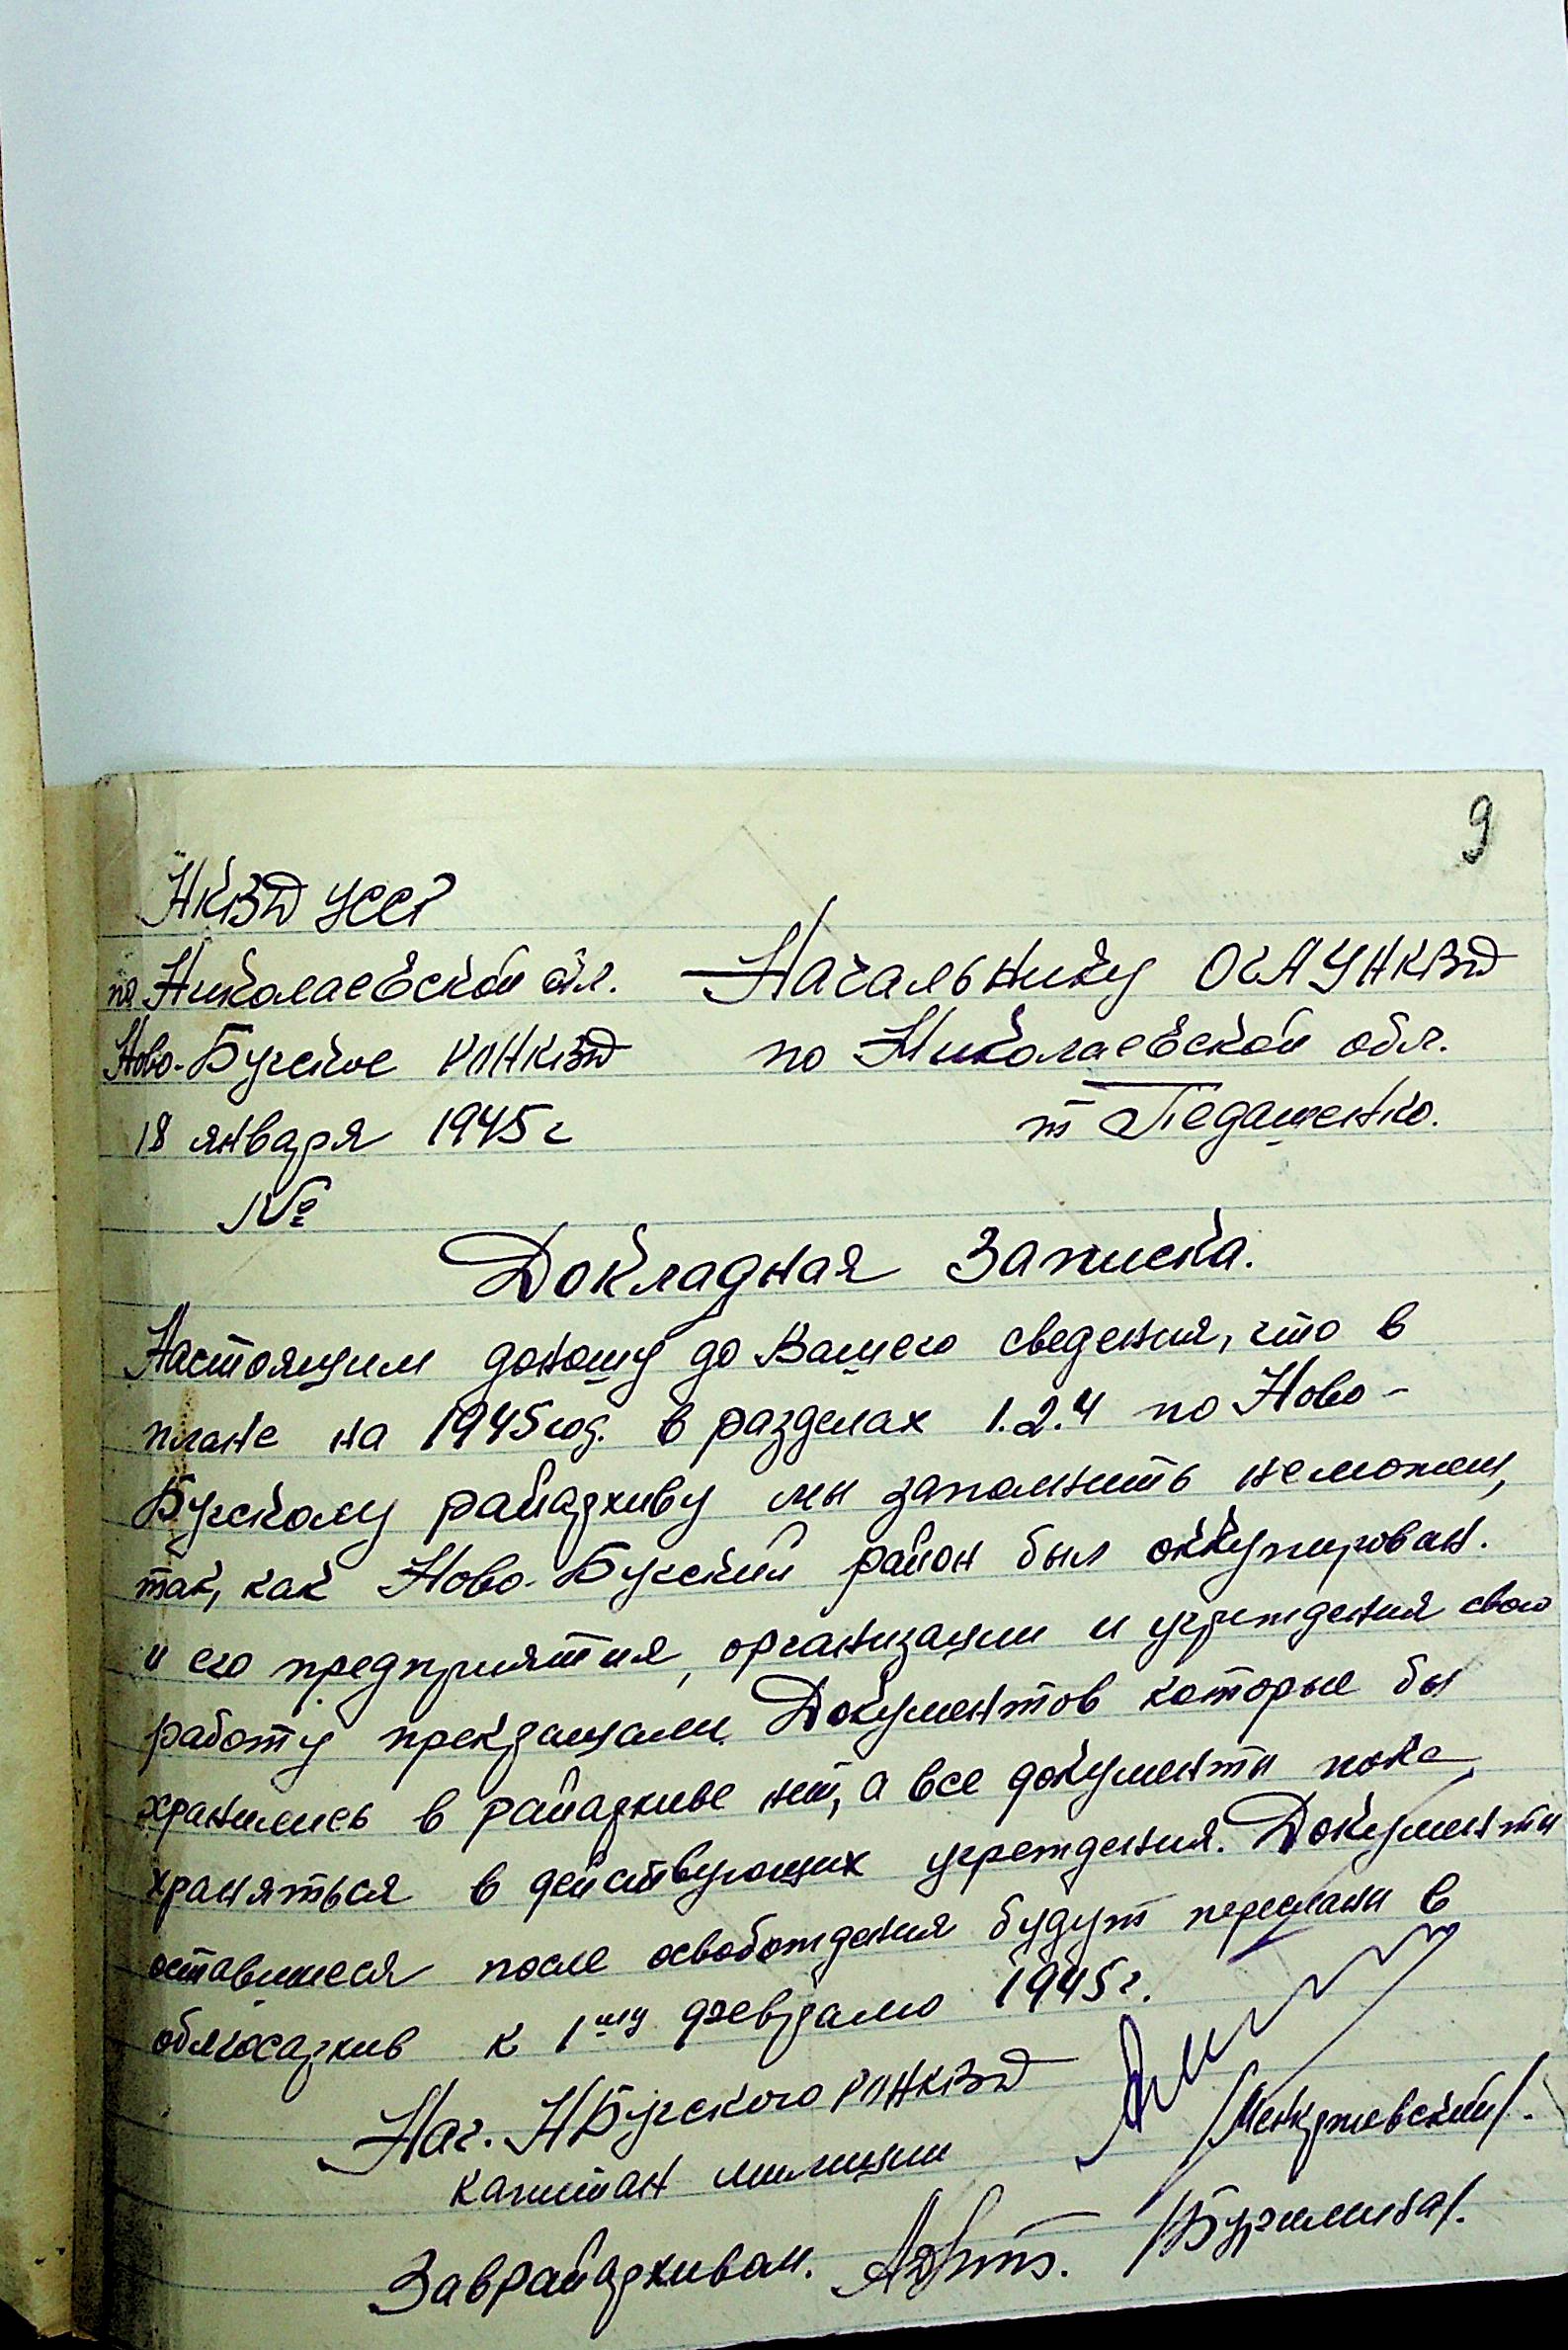 9
НКВД УССР
по Николаевской обл.
Начальнику ОГА УНКВД
Ново-Бугское РОНКВД
по Николаевской обл.
18 января 1945г
т Педашенко.
№
Докладная Записка.
Настоящим доношу до Вашего сведения, что в
плане на 1945 год. в разделах 1.2.4 по Ново-
Бугскому райархиву мы заполнить неможем,
так, как Ново-Бугский район был оккупирован.
и его предприятия, организации и учреждения свою
работу прекращали. Документов которые бы
хранились в райархиве нет, а все документы пока
храняться в действующих учреждения. Документы
оставшиеся после освобождения будут пересланы в
облгосархив к 1му февралю 1945г.
Нач. НБугского РОНКВД
капитан милиции
/Менкржевский/.
Заврайархивом.